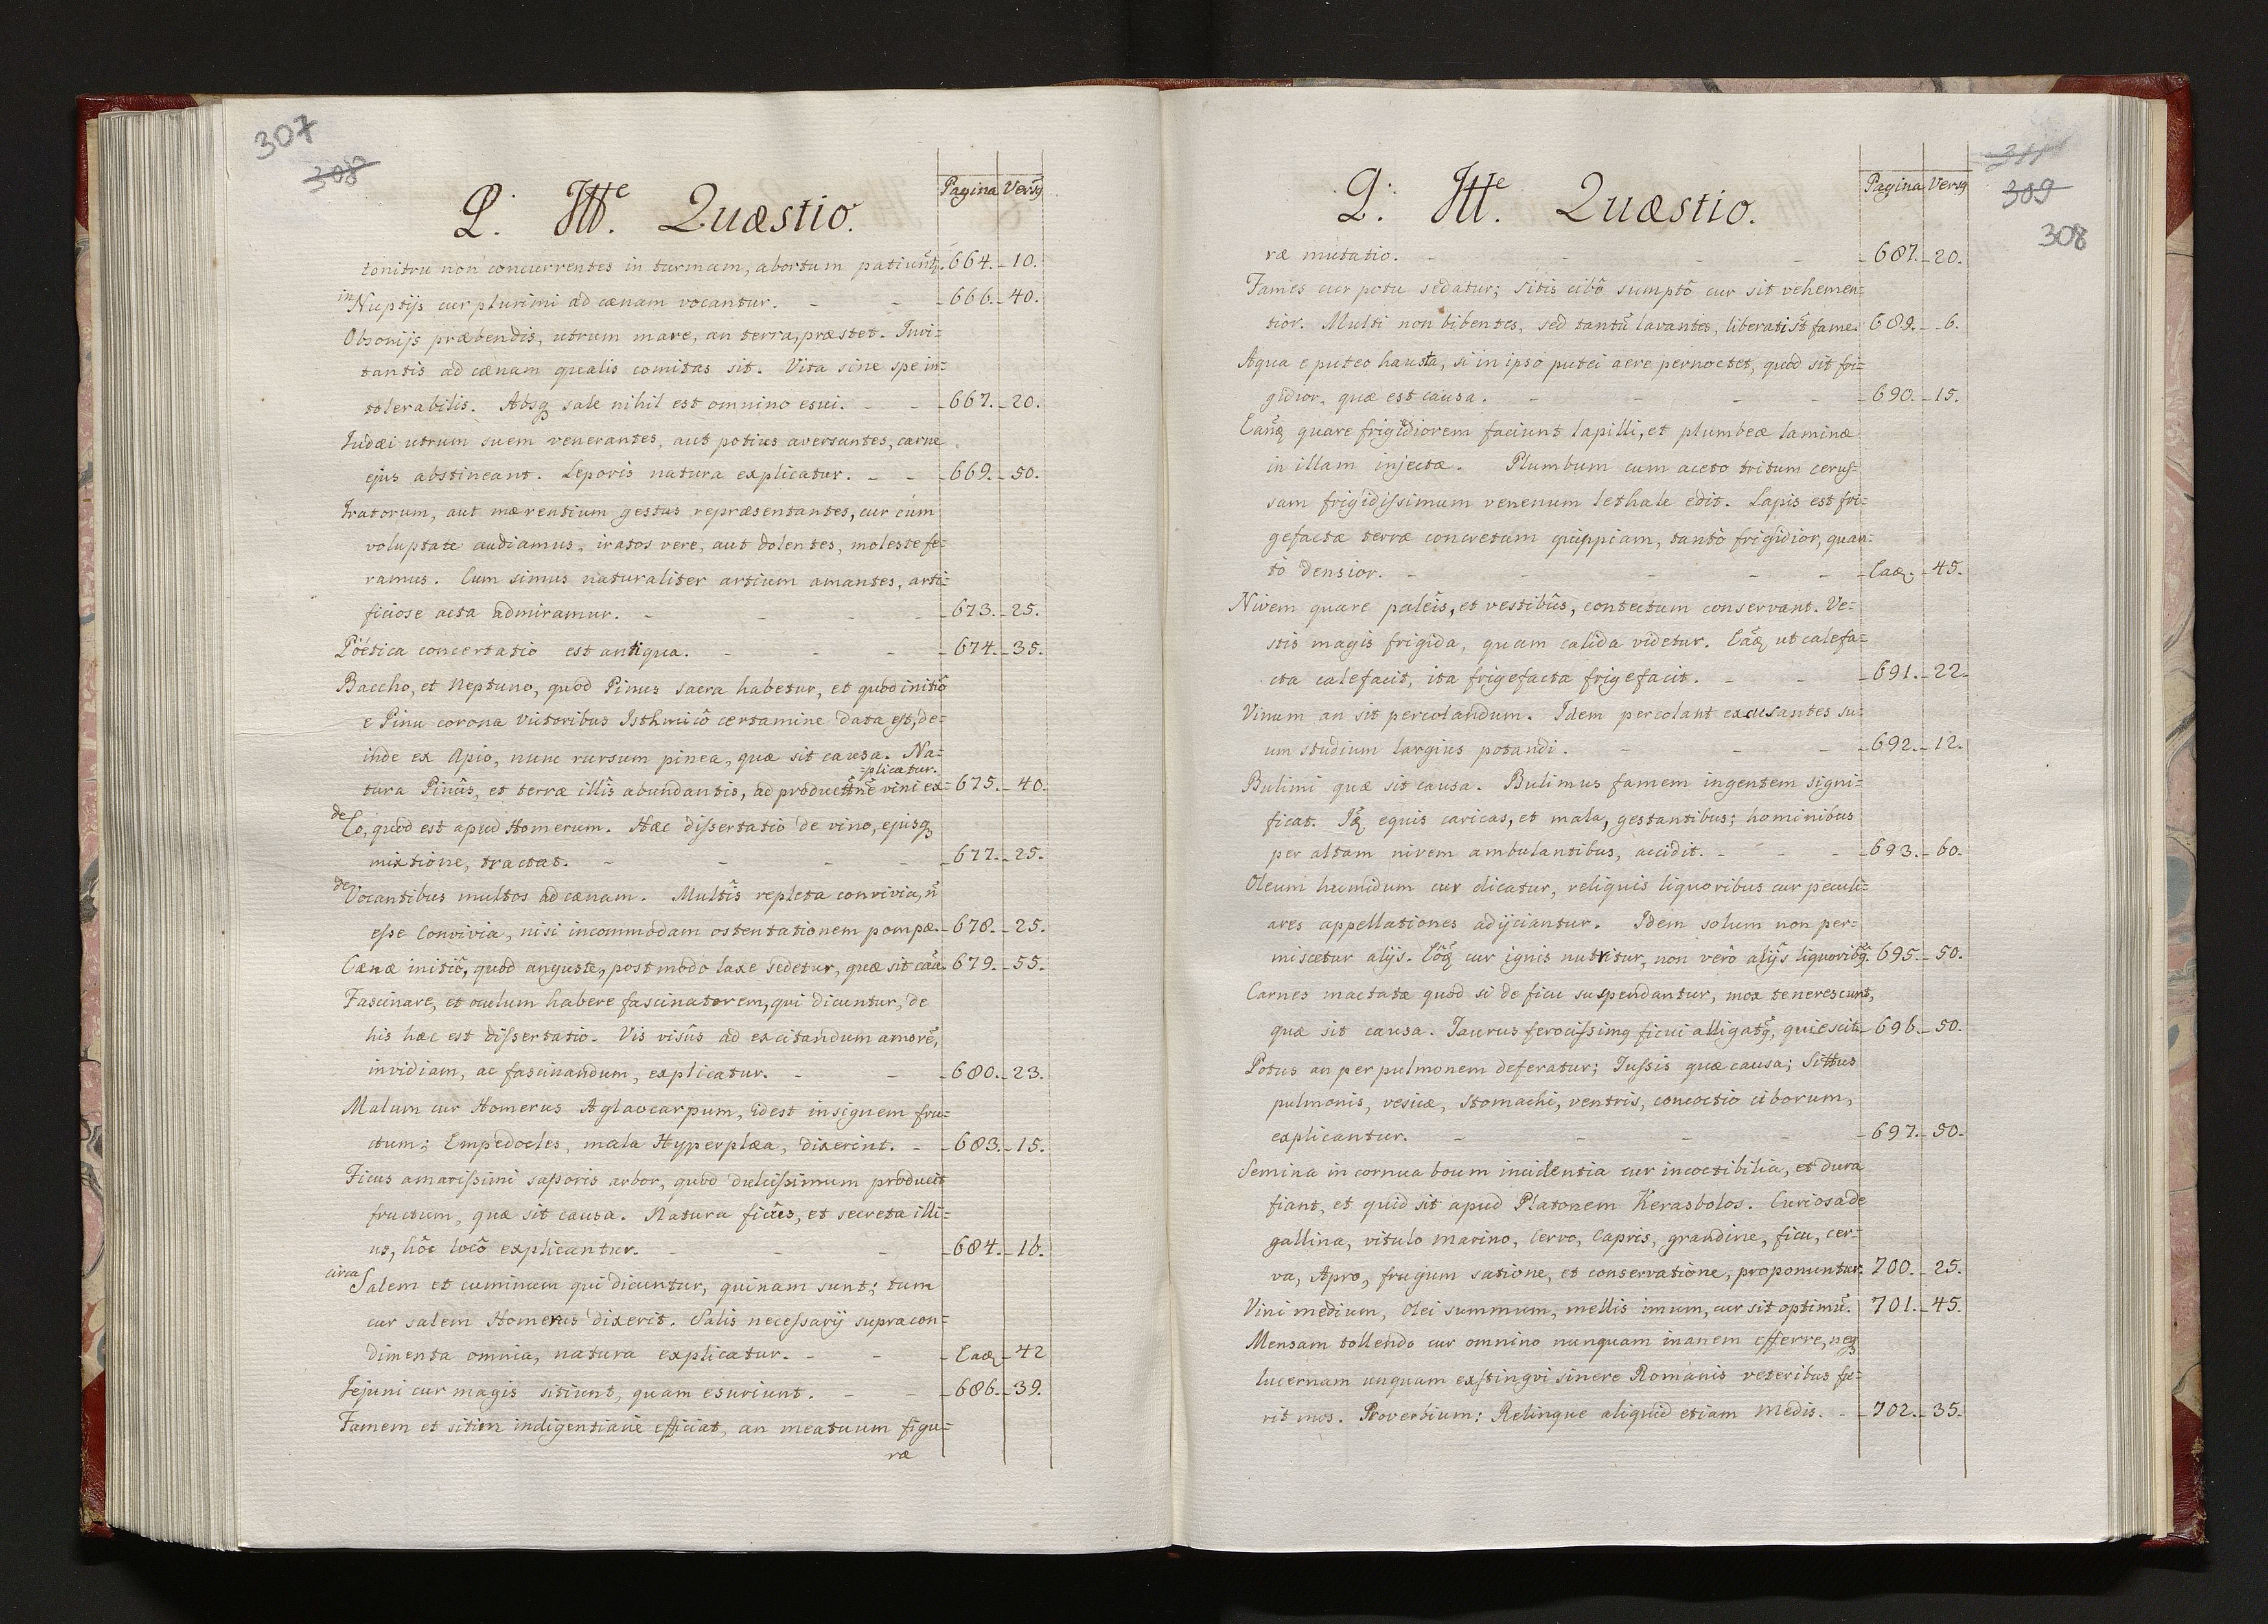 307
308
Q. Itte. Quæstio.
Pagina Versꝯ
tonitru non concurrentes in turmam, abortum patiunt̃. 664. 10.
in Nuptijs cur plurimi ad cænam vocantur. - - 666. 40.
Obsonijs præbendis, utrum mare, an terra, præstet. Invi=
tantis ad cænam qualis comitas sit. Vita sine spe in=
tolerabilis. Absq̃ sale nihil est omnino esui. - - 667. 20.
Iudæi utrum suem venerantes, aut potius aversantes, carne
ejus abstineant. Leporis natura explicatur. - - 669. 50.
Iratorum, aut mærentium gestus repræsentantes, cur cùm
voluptate audiamus, iratos vere, aut dolentes, moleste fe=
ramus. Cum simus naturaliter artium amantes, arti=
ficiose acta admiramur. - - - - 673. 25.
Pöetica concertatio est antiqua. - - - 674. 35.
Baccho, et Neptuno, quod Pinus sacra habetur, et quod initiô
e Pinu corona victoribus Isthmicô certamine data est, de=
inde ex Apio, nunc rursum pinea, quæ sit causa. Na=
=plicatur.
tura Pinûs, et terræ illîs abundantis, ad productne̅ vini ex= 675. 40.
de Eo, quod est apud Homerum. Hæc dissertatio de vino, ejusq̃
mixtione, tractat. - - - - 677. 25.
de Vocantibus multos ad cænam. Multîs repleta convivia, ñ
esse Convivia, nisi incommodam ostentationem pompæ. 678. 25.
Cænæ initiô, quod anguste, postmodo laxe sedetur, quæ sit cãa. 679. 55.
Fascinare, et oculum habere fascinatorem, qui dicuntur, de
his hæc est dissertatio. Vis visûs ad excitandum amorẽ,
invidiam, ac fascinandum, explicatur. - - 680. 23.
Malum cur Homerus Aglaocarpum, idest insignem fru=
ctum; Empedocles, mala Hyperplæa, dixerint. - 683. 15.
Ficus amarissimi saporis arbor, quod dulcissimum producit
fructum, quæ sit causa. Natura ficûs, et secreta illi=
us, hôc locô explicantur. - - - 684. 16.
circa Salem et cuminum qui dicuntur, quinam sunt; tum
cur salem Homerus dixerit. Salis necessarij supra con=
dimenta omnia, natura explicatur. - - Eaꝗ 42
Jejuni cur magis sitiunt, quam esuriunt. - - 686. 39.
Famem et sitim indigentiane efficiat, an meatuum figu=
ræ
311
309
308
Q. Itte. Quæstio.
Pagina Versꝯ
ræ mutatio. - - - - 687. 20.
Fames cur potu sedatur; sitis cibô sumptô cur sit vehemen=
tior. Multi non bibentes, sed tantũ lavantes, liberati st̃ fame. 689. 6.
Aqua e puteo hausta, si in ipso putei aere pernoctet, quod sit fri=
gidior, quæ est causa. - - - - 690. 15.
Eañꝗ quare frigidiorem faciunt lapilli, et plumbeæ laminæ
in illam injectæ. Plumbum cum aceto tritum cerus=
sam frigidissimum venenum lethale edit. Lapis est fri=
gefactæ terræ concretum quippiam, tantò frigidior, quan=
tò densior. - - - - - Eaꝗ. 45.
Nivem quare paleîs, et vestibûs, contectum conservant. Ve=
stis magis frigida, quam calida videtur. Eãꝗ ut calefa=
cta calefacit, ita frigefacta frigefacit. - - 691. 22.
Vinum an sit percolandum. Idem percolant excusantes su=
um studium largius potandi. - - - 692. 12.
Bulimi quæ sit causa. Bulimus famem ingentem signi=
ficat. Iꝗ equis caricas, et mala, gestantibus; hominibus
per altam nivem ambulantibus, accidit. - - - 693. 60.
Oleum humidum cur dicatur, reliquis liquoribus cur peculi=
ares appellationes adijciantur. Idem solum non per=
miscetur alijs. Eôꝗ cur ignis nutritur, non verò alijs liquoribꝯ. 695. 50.
Carnes mactatæ quod si de ficu suspendantur, mox tenerescunt,
quæ sit causa. Taurus ferocissimꝯ ficui alligatꝯ, quiescit. 696. 50.
Potus an per pulmonem deferatur; Tussis quæ causa; Sittus
pulmonis, vesicæ, stomachi, ventris, concoctio ciborum,
explicantur. - - - - 697. 50.
Semina in cornua boum incidentia cur incoctibilia, et dura
fiant, et quid sit apud Platonem Kerasbolos. Curiosa de
gallina, vitulo marino, Cervo, Capris, grandine, ficu, cer=
va, Apro, frugum satione, et conservatione, proponuntur. 700. 25.
Vini medium, Olei summum, mellis imum, cur sit optimũ. 701. 45.
Mensam tollendo cur omnino nunquam inanem efferre, neq̃
lucernam unquam exstingvi sinere Romanis veteribus fu=
rit mos. Proverbium: Relinque aliquid etiam Medis. - 702. 35.